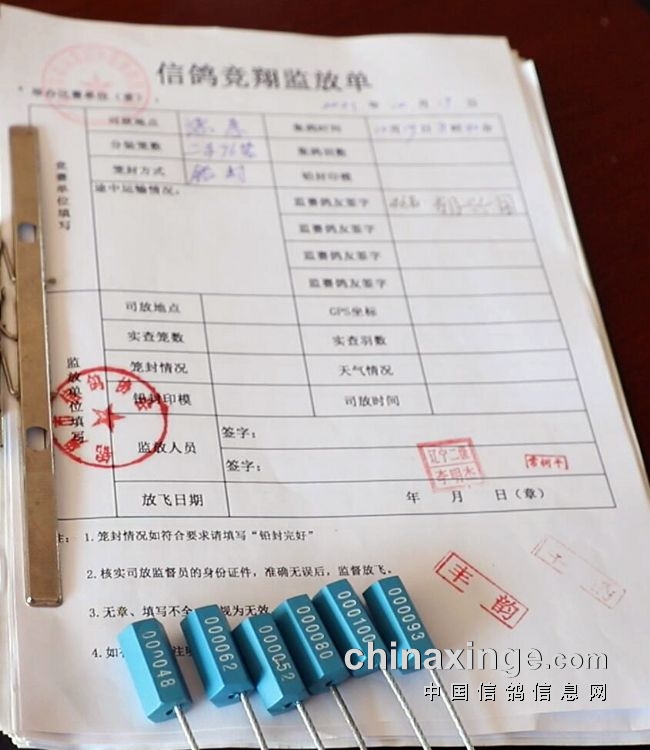 信鸽竞翔监放单
举办比赛单位（章）
年 月 日
司放地点 集鸽时间
分装笼数 二 集鸽羽数
笼封方式 铅封 铅封印模
竞赛单位填写
途中运输情况： 监赛鸽友签字
监赛鸽友签字
监赛鸽友签字
监赛鸽友签字
司放地点 GPS坐标
实查笼数 实查羽数
笼封情况 天气情况
铅封印模 司放时间
监放单位填写
监放人员 签字：
签字：
辽宁二
放飞日期 年 月 日（章）
注： 1.笼封情况如符合要求请填写“铅封完好”
2.核实司放监督员的身份证件，准确无误后，监督放飞。
3.无章、填写不全 视为无效
4.如
丰韵
000048
000062
000052
000080
000100
000093
chinaxinge.com
中国信鸽信息网